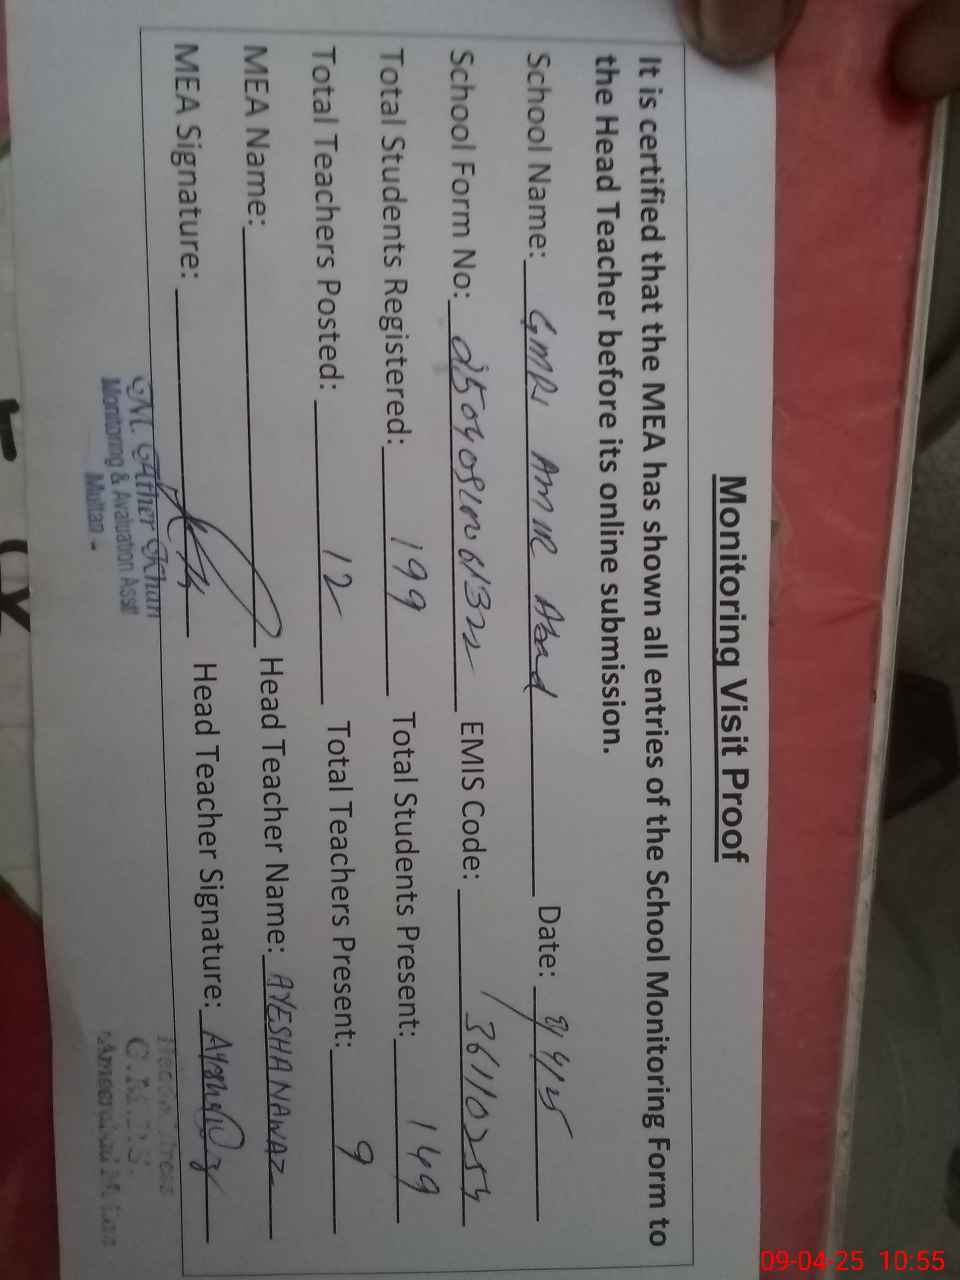 Monitoring Visit Proof
It is certified that the MEA has shown all entries of the School Monitoring Form to
the Head Teacher before its online submission.
School Name: AMIR Abad Date:
School Form No: EMIS Code: 36110254
Total Students Registered: 199 Total Students Present: 149
Total Teachers Posted: 12 Total Teachers Present: 9
MEA Name: Head Teacher Name: AYESHA NAWAZ
MEA Signature: Head Teacher Signature:
M. Ather Khan
Monitoring & Avaluation Asstt
Multan
09-04-25 10:55